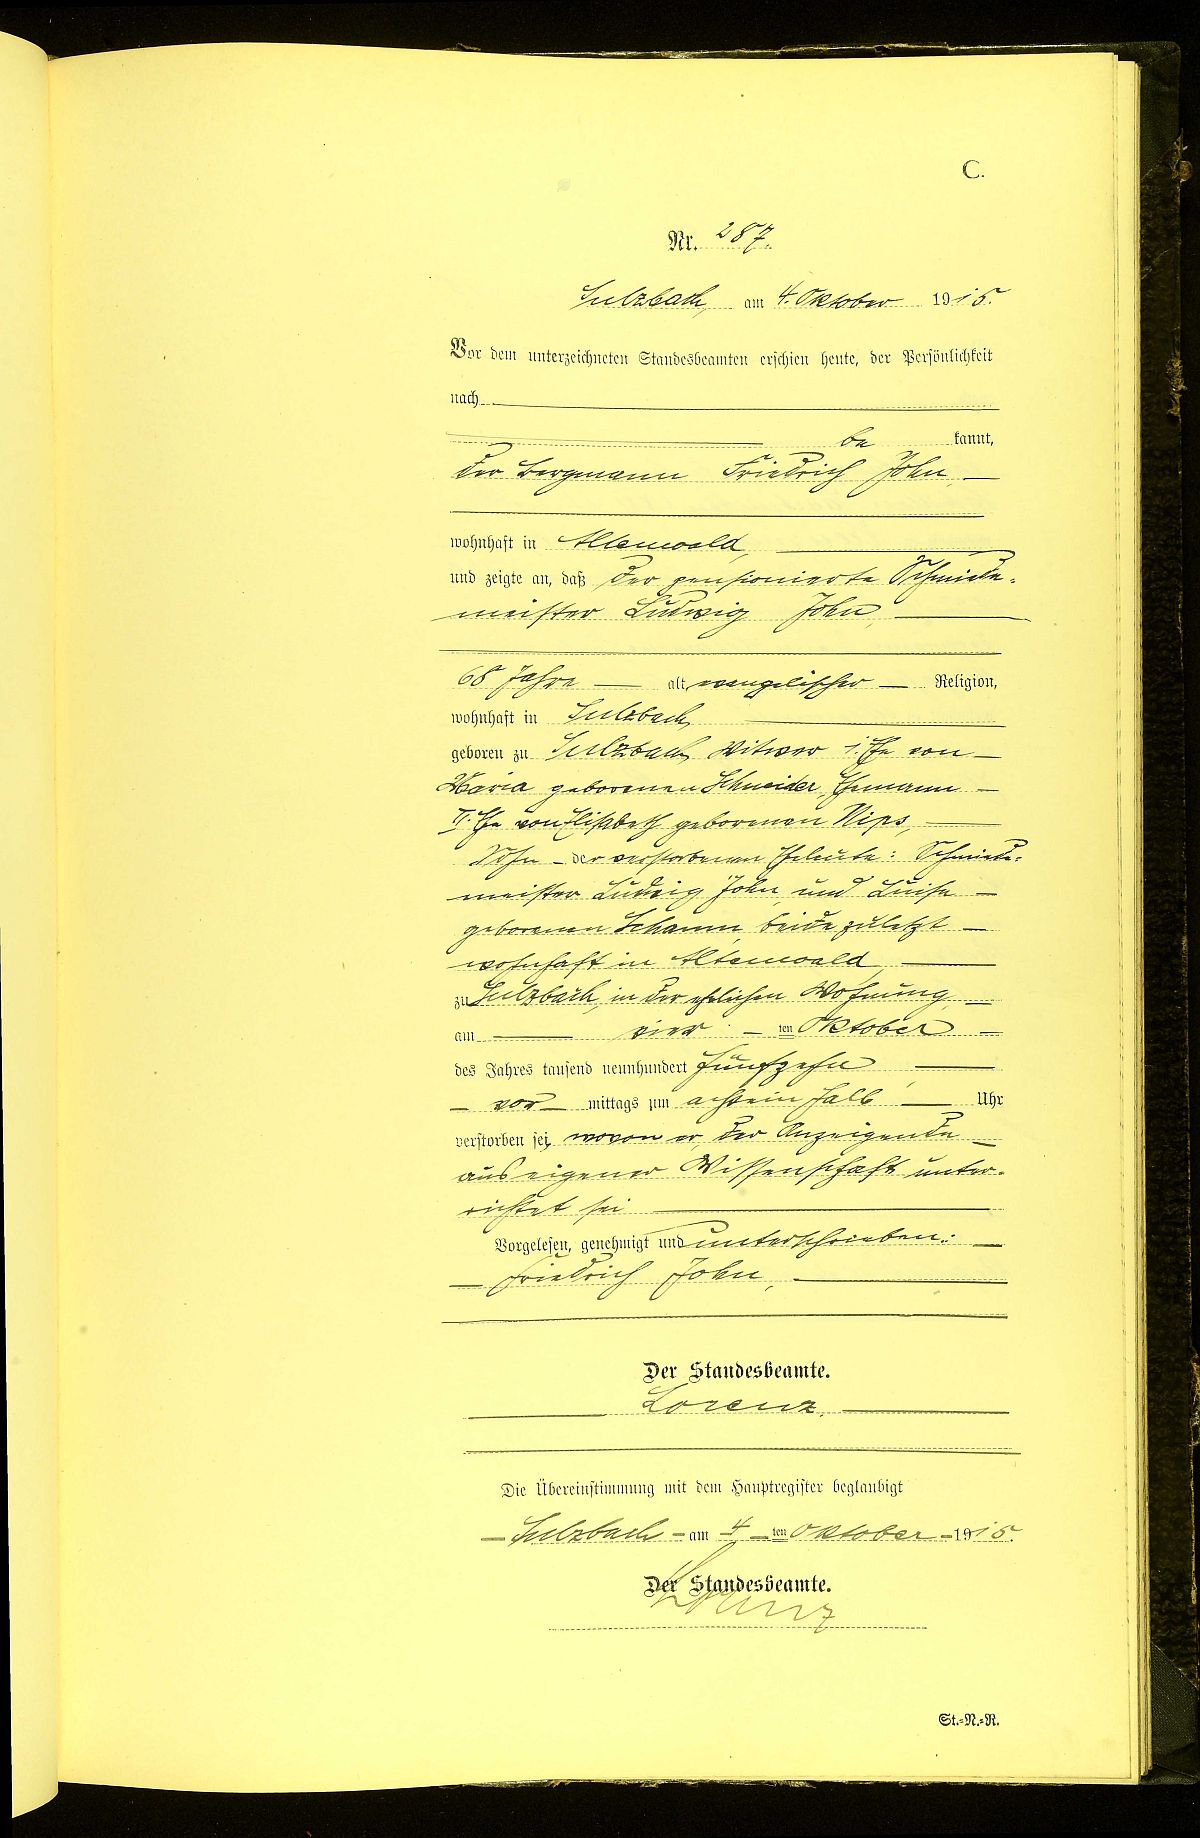 C.
Nr. 287.
Sulzbach, am 4. Oktober 1915.
Vor dem unterzeichneten Standesbeamten erschien heute, der Persönlichkeit
nach
be kannt,
der Bergmann Friedrich John,
wohnhaft in Altenwald,
und zeigte an, daß der pensionierte Schmiede-
meister Ludwig John,
68 Jahre alt, evangelischer Religion,
wohnhaft in Sulzbach,
geboren zu Sulzbach, Witwer I. Ehe von
Maria geborenen Schneider, Ehemann
II. Ehe von Elisabeth geborenen Nips,
Sohn der verstorbenen Eheleute: Schmiede-
meister Ludwig John und Luise
geborenen Schamm, beide zuletzt
wohnhaft in Altenwald,
zu Sulzbach, in der ehelichen Wohnung,
am vier ten Oktober
des Jahres tausend neunhundert fünfzehn,
vor mittags um achteinhalb Uhr
verstorben sei, wovon er, der Anzeigende
aus eigener Wissenschaft unter-
richtet sei
Vorgelesen, genehmigt und unterschrieben:
Friedrich John,
Der Standesbeamte.
Lorenz.
Die Übereinstimmung mit dem Hauptregister beglaubigt
Sulzbach am 4 ten Oktober 1915.
Der Standesbeamte.
Lorenz
St.=N.=R.